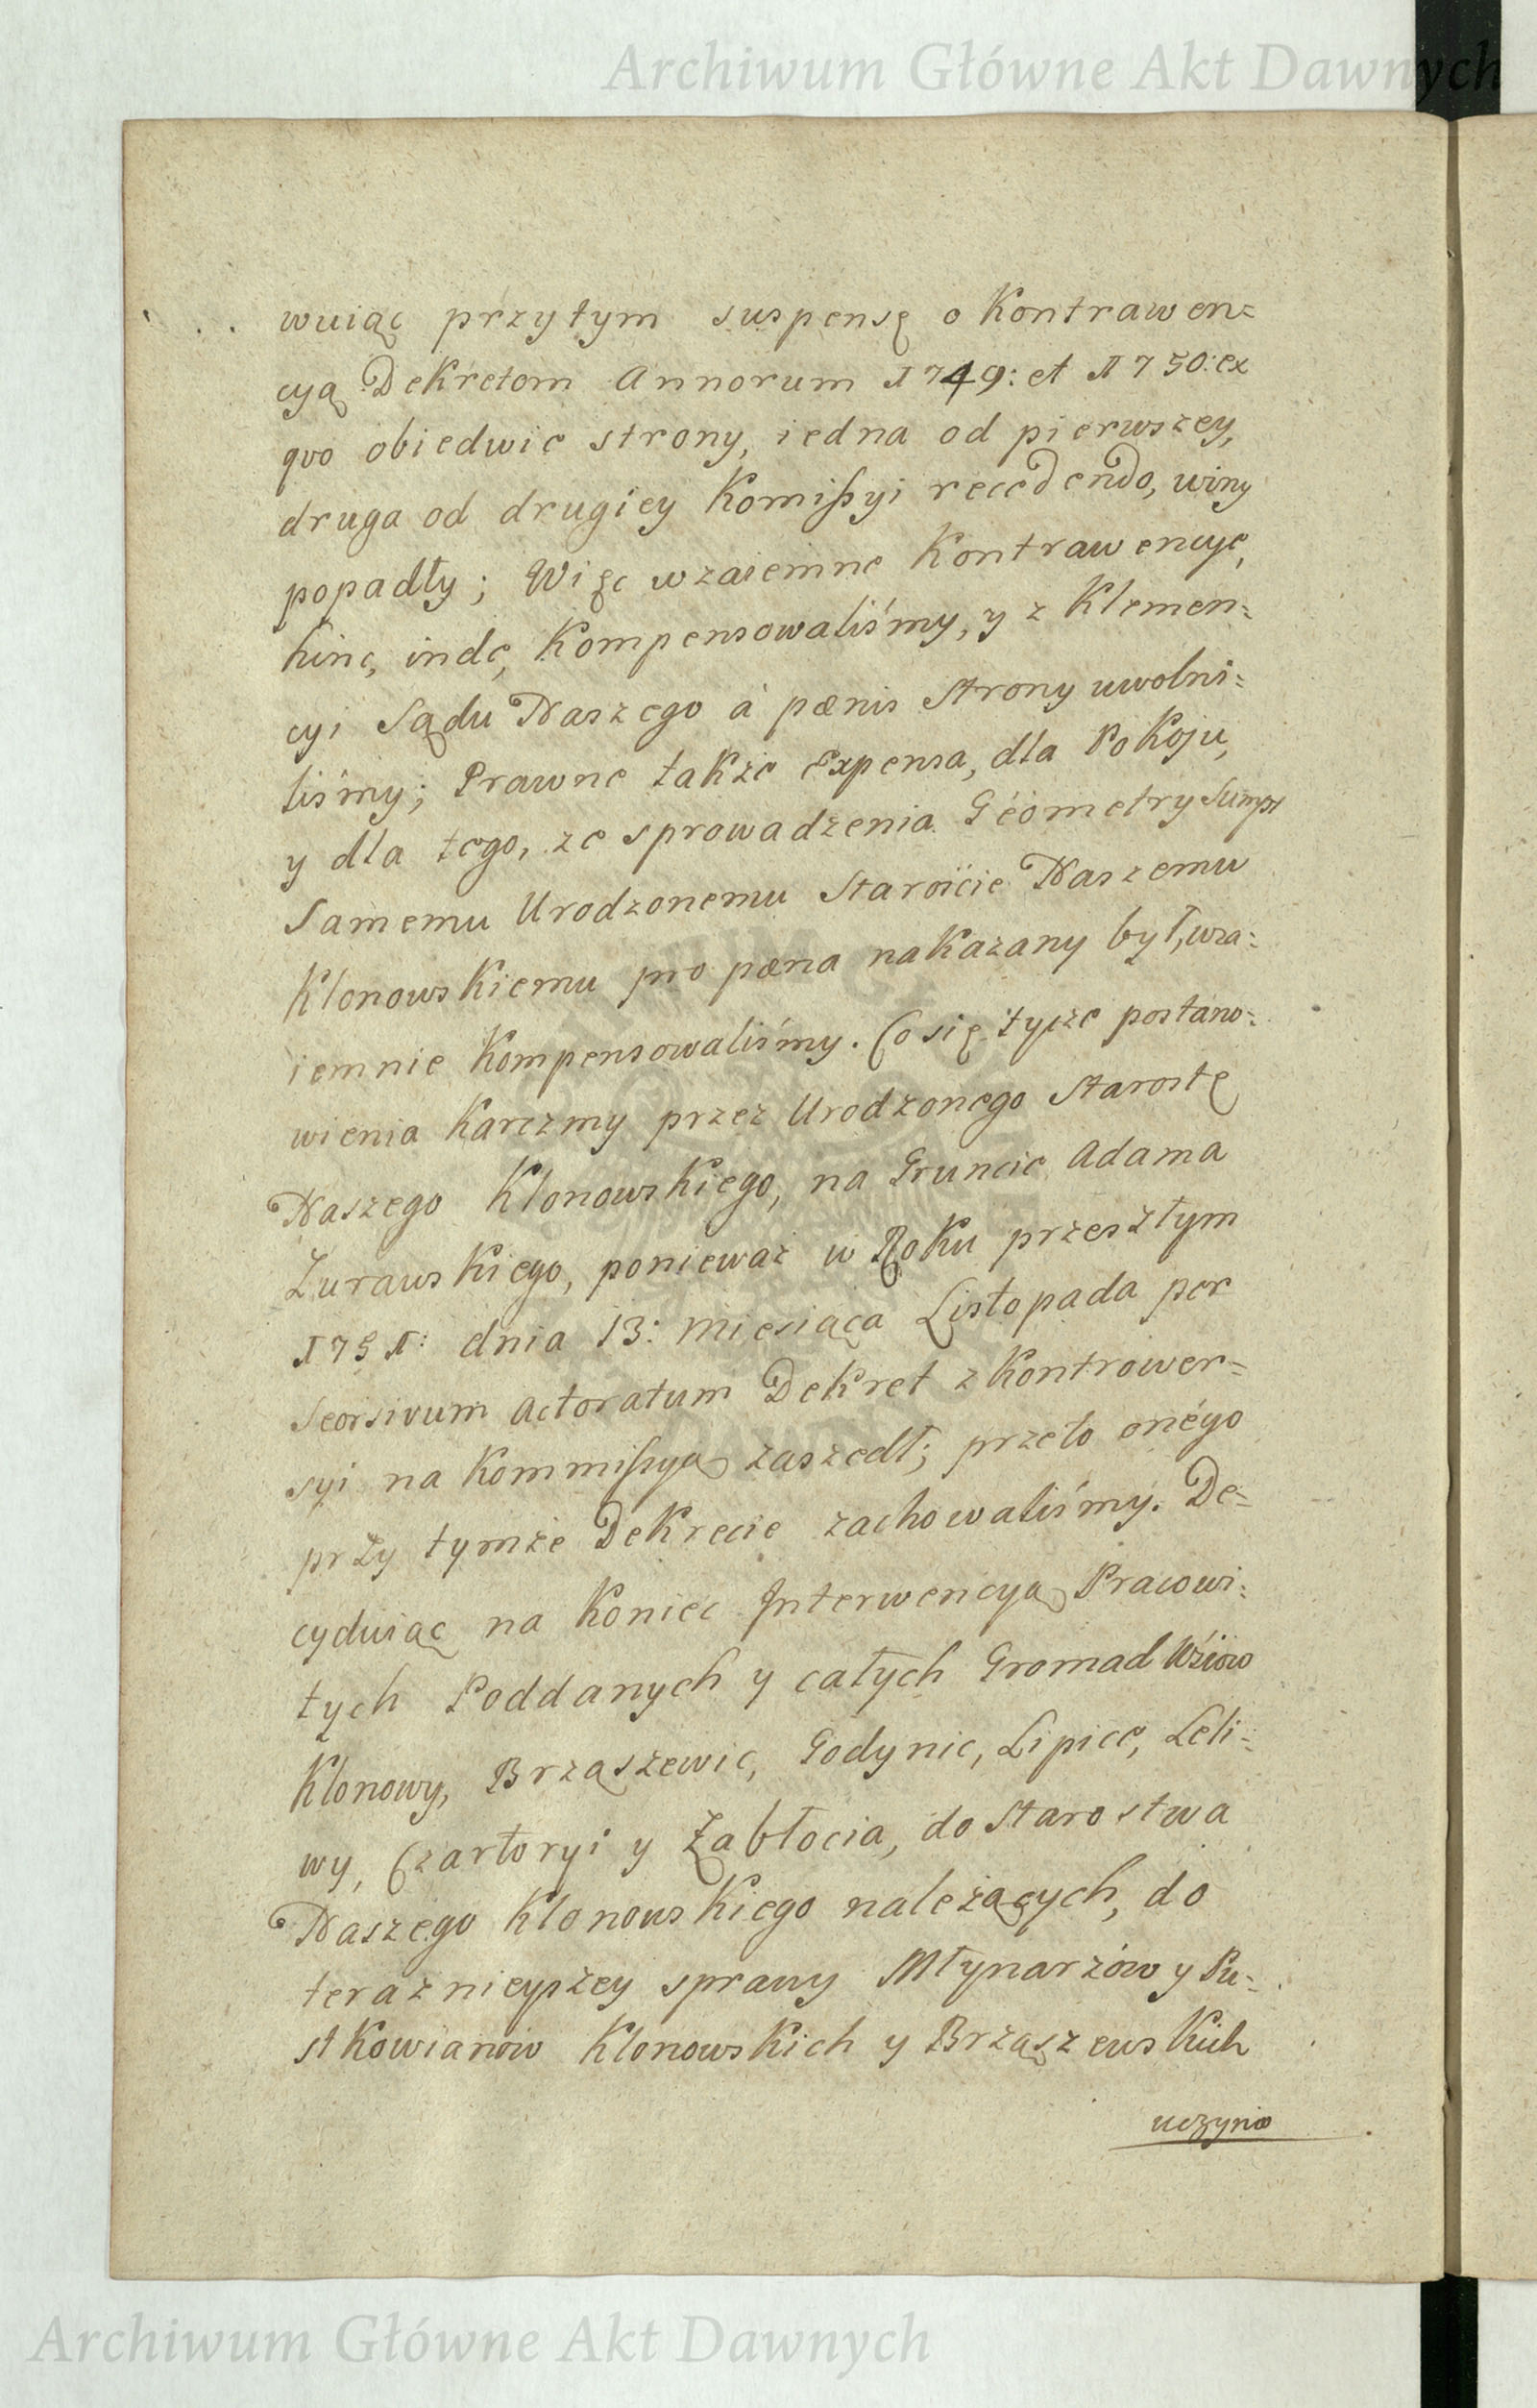 Archiwum Główne Akt Dawnych
wuiąc przytym suspensę o Kontrawen=
cyą Dekretom Annorum 1749: et 1750: ex
quo obiedwie strony, iedna od pierwszey,
druga od drugiey Komißyi recedendo, winy
popadły; Więc wzaiemne Kontrawencye,
hinc, inde, Kompensowaliśmy, y z Klemen=
cyi Sądu Naszego à pœnis Strony uwolni=
liśmy; Prawne także Expensa, dla Pokoju,
y dla tego, ze sprowadzenia Geometry Sumpt
Samemu Urodzonemu Staroście Naszemu
Klonowskiemu pro pœna nakazany był, wza=
iemnie Kompensowaliśmy. Co się tycze postano=
wienia Karczmy przez Urodzonego Starostę
Naszego Klonowskiego, na Gruncie Adama
Żurawskiego, ponieważ w Roku przeszłym
1751: dnia 13: Miesiąca Listopada per
Seorsivum Actoratum Dekret z Kontrower=
syi na Kommißyą zaszedł; przeto onego
przy tymże Dekrecie zachowaliśmy. De=
cyduiąc na Koniec Interwencyą Pracowi=
tych Poddanych y całych Gromad Wsiow
Klonowy, Brząszewic, Godynic, Lipicc, Leli=
wy, Czartoryi y Zabłocia, do Starostwa
Naszego Klonowskiego należących, do
teraznieyszey sprawy Młynarzów y Pu=
stkowianow Klonowskich y Brząszewskich
uczynio
Archiwum Główne Akt Dawnych